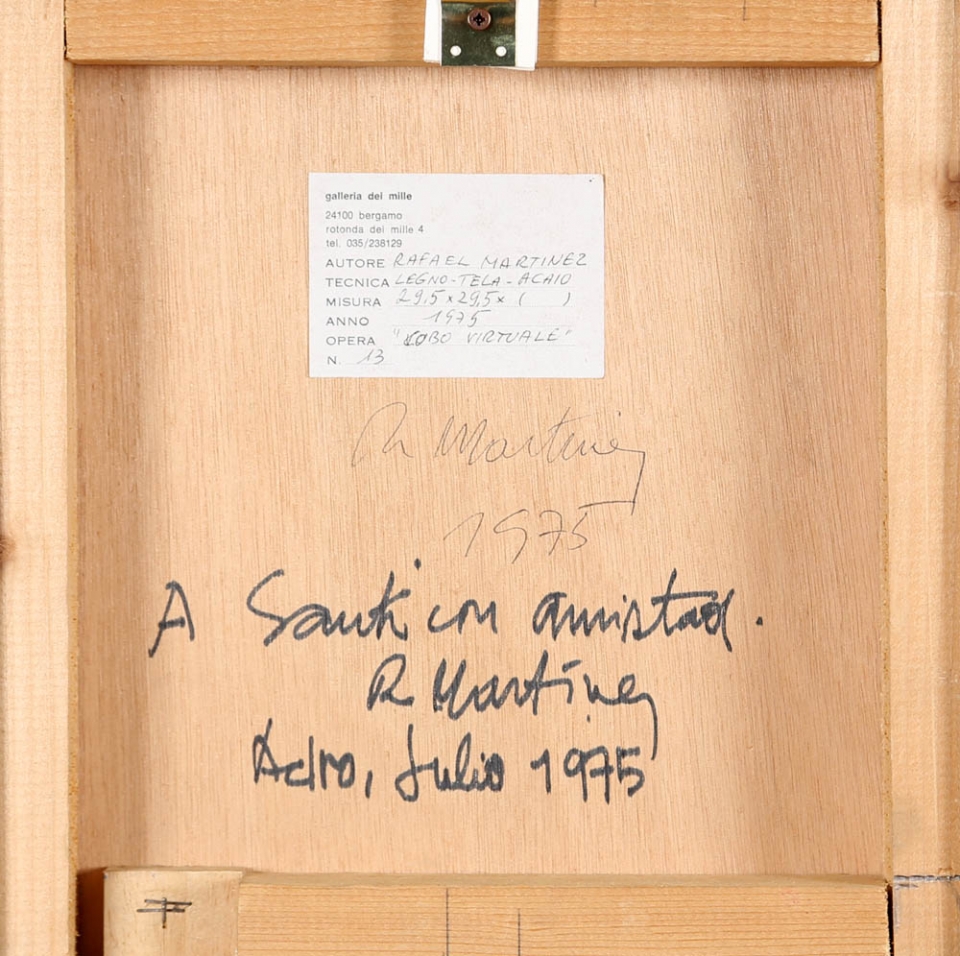 galleria dei mille
24100 bergamo
rotonda dei mille 4
tel. 035/238129
AUTORE RAFAEL MARTINEZ
TECNICA LEGNO-TELA-ACAIO
MISURA 29,5 x 29,5 x ( )
ANNO 1975
OPERA "COBO VIRTUALE"
N. 13
R Martinez
1975
A Santi con amistad.
R Martínez
Adro, Julio 1975